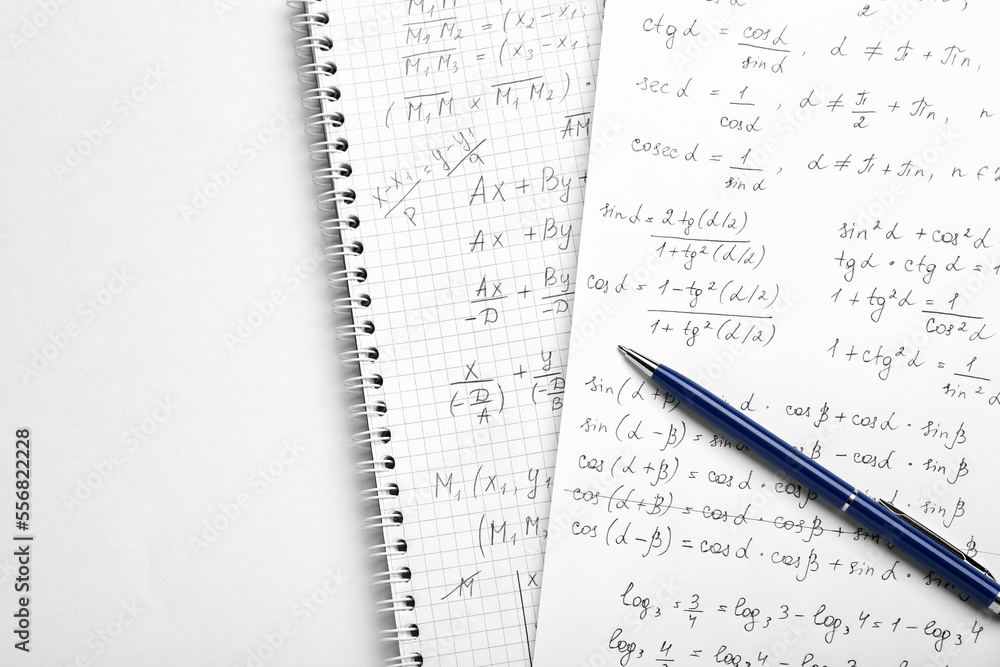 M₁M = (x₂-x₁;
M₁M₂
M₁M₃ = (x₃-x₁;
(M₁M × M₁M₂) ·
AM
x-x₁/p = y-y₁/q
Ax + By +
Ax + By
Ax/-D + By/-D
x/(-D/A) + y/(-D/B
M₁(x₁, y₁
(M₁M₂
M
x
2
ctgα = cosα/sinα, α ≠ π + πn,
secα = 1/cosα, α ≠ π/2 + πn, n
cosecα = 1/sinα, α ≠ π + πn, n ∈ Z
sinα = 2tg(α/2)/1+tg²(α/2)
cosα = 1-tg²(α/2)/1+tg²(α/2)
sin²α + cos²α
tgα · ctgα = 1
1 + tg²α = 1/cos²α
1 + ctg²α = 1/sin²α
sin(α+β) α · cosβ + cosα · sinβ
sin(α-β) = sin β - cosα · sinβ
cos(α+β) = cosα · cosβ α · sinβ
cos(α+β) = cosα · cosβ + sin β
cos(α-β) = cosα · cosβ + sinα · sin
log₃ = 3/4 = log₃3 - log₃4 = 1 - log₃4
log₃ 4/3 = log₃4 - log₃
Adobe Stock | #556822228